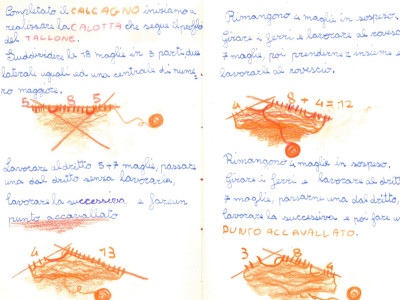 Completato il CALCAGNO iniziamo a
realizzare la CALOTTA che segue il profilo
del TALLONE.
Suddividere le 18 maglie in 3 parti, due
laterali uguali ed una centrale di nume-
ro maggiore.
5 8 5
Lavorare al dritto 5+7 maglie, passare
una dal dritto senza lavorarla,
lavorare la successiva e fare un
punto accavallato
4 13
Rimangono 4 maglie in sospeso.
Girare i ferri e lavorare al rovesc
7 maglie, poi prenderne 2 insieme e
lavorarle al rovescio.
4 8+4=12
Rimangono 4 maglie in sospeso.
Girare i ferri e lavorare al dritt
7 maglie, passarne una dal dritto,
lavorare la successiva e poi fare u
PUNTO ACCAVALLATO.
3 8 9